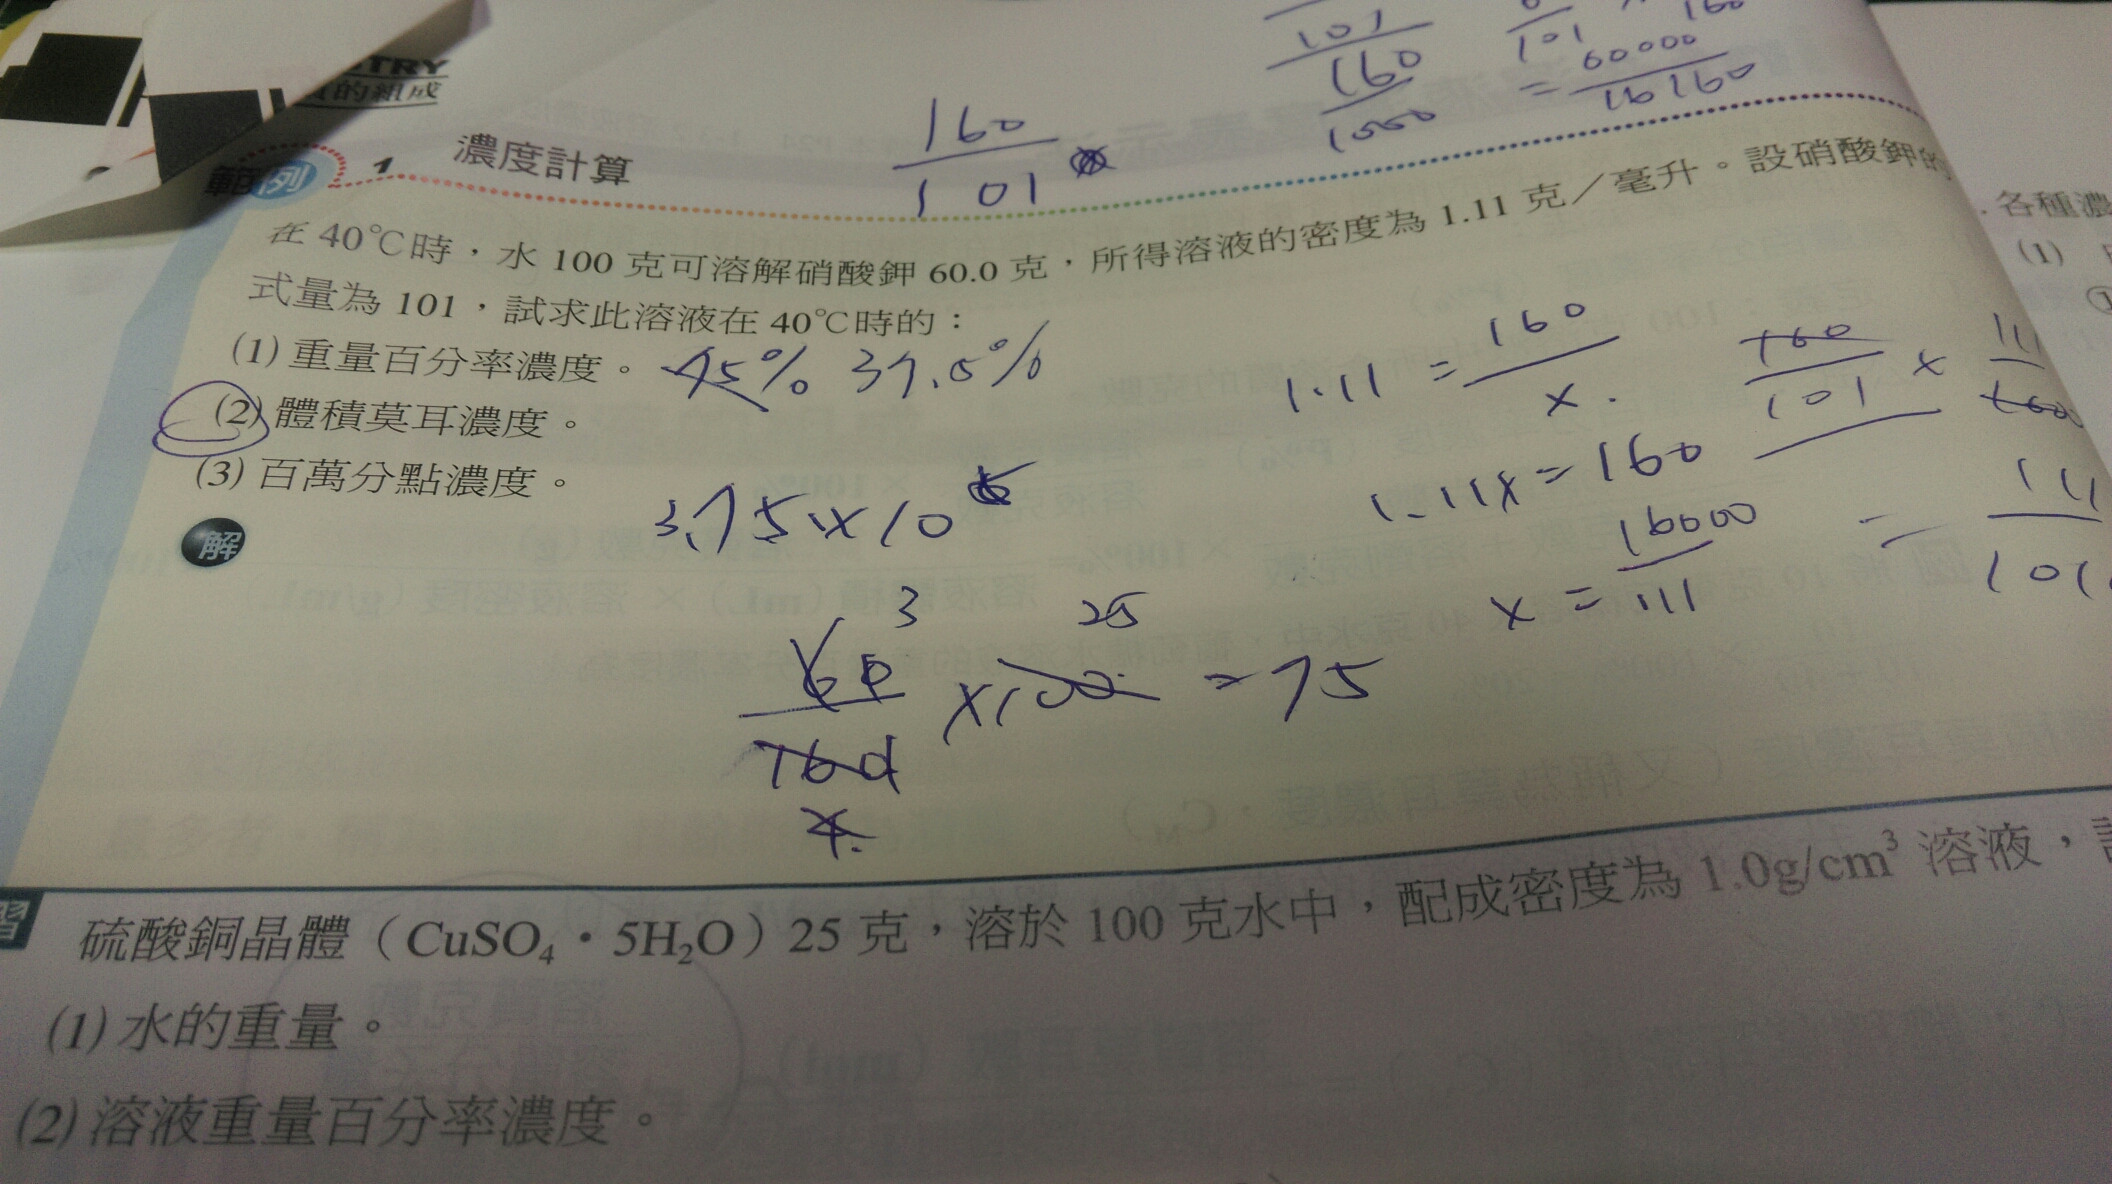 的組成
範例 1 濃度計算
160
101
101
160
1000
101
160
= 60000
在 40℃時，水 100 克可溶解硝酸鉀 60.0 克，所得溶液的密度為 1.11 克／毫升。設硝酸鉀的
式量為 101，試求此溶液在 40℃時的：
(1) 重量百分率濃度。 37.5%
(2) 體積莫耳濃度。
(3) 百萬分點濃度。
3.75×10
解
1.11 = 160
x.
1.11x = 160
x = 16000
111
160
101
×
111
160
= 111
101
3 25
60
160
×100 = 75
4.
習 硫酸銅晶體（CuSO₄・5H₂O）25 克，溶於 100 克水中，配成密度為 1.0g/cm³ 溶液，
(1) 水的重量。
(2) 溶液重量百分率濃度。
各種濃
(1)